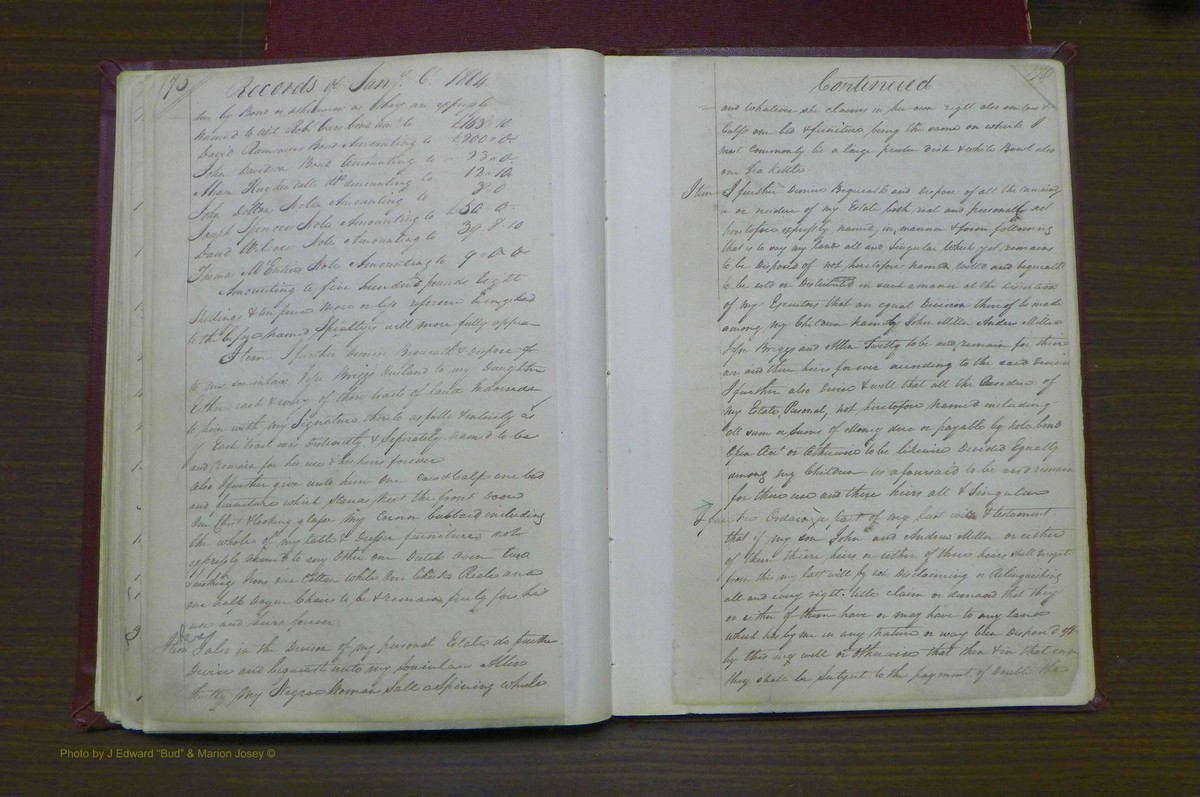 Records of Jany. 6. 1814
due by Bond or otherwise as they are expressly
named to wit Rob
David Bond Amounting to £200-0-
John Davidson Bond Amounting to 23-0-
to 12-10
John Dotton Note Amounting to 3-0
Joseph Spencer Note Amounting to £50-0-
David Wilson Note Amounting to 39-8-10
Thomas McEntire Note Amounting to 9-0-0
Amounting to five hundred pounds Eight
Shillings & ten pence more or less reference being had
to the before named Specialties will more fully appear
Item I further Demise Bequeath & dispose of
to my son in law Jesse Briggs husband to my Daughter
Esther each & every of those tracts of land
with my Signature thereto as fully & entirely as
if Each tract was distinctly & Seperately named to be
and remain for his use & his heirs forever
also I further give unto him one Cow & Calf one bed
and furniture which stands next the front Door
One Chest & looking glass My Corner Cubbard including
the whole of my table & Dresser furniture not
expressly named to any other one Dutch oven two
one Cotton Wheel One Check Reele and
one half Dozen Chairs to be & remain freely for his
use and heirs forever
Item I also in the Devison of my personal Estate do further
Devise and bequeath unto my soninlaw Allen
Twitty My Negro Woman Sall a spining whele
Continued
and whatever she claims in her own right also one Cow &
Calf one bed & furniture being the same on which I
most commonly lie a large pewter Dish & white Bowl also
one tea kettle
Item I further Demise Bequeath and dispose of all the remaining
or residue of my Estate both real and personally not
heretofore expressly named in manner & form following
that is to say my lands all and Singular Which yet remains
to be disposed of not heretofore named willed and bequeathed
to be sold or Distributed in such a manner at the discretion
of my Executors that an equal Division thereof be made
among my Children namely John Miller Andrew Miller
Jesse Briggs and Allen Twitty to be and remain for their
own and their heirs forever according to the said Division
I further also Devise & will that all the Residue of
my Estate, Personal, not heretofore Named including
all sum or Sums of Money due or payable by note bond
Open Act. or Otherwise to be likewise Divided Equally
among my Children as aforesaid to be and remain
for there use and there heirs all & Singular
Ordain a part of my last will & testament
that if my son John and Andrew Miller or either
of them there heirs or either of there heirs shall
from this my last will by not Disclaiming or Relinquishing
all and every right title claim or demand that they
or either of them have or may have to any lands
which has by me in any Nature or way been Disposd off
by this my will or otherwise that then & in that case
they shall be subject to the payment of Double the
Photo by J Edward "Bud" & Marion Josey ©